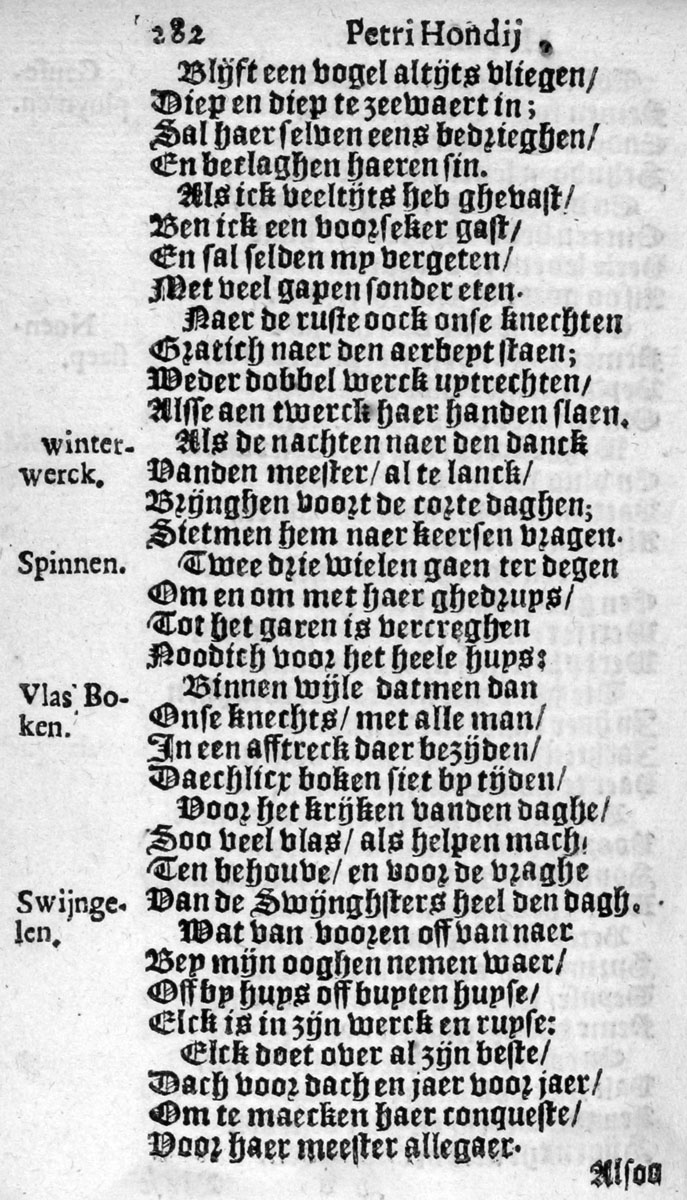 282 Petri Hondij
Blijft een vogel altijts vliegen/
Diep en diep te zeewaert in;
Sal haer selven eens bedrieghen/
En beclaghen haeren sin.
Als ick veeltijts heb ghevast/
Ben ick een voorseker gast/
En sal selden my vergeten/
Met veel gapen sonder eten.
Naer de ruste oock onse knechten
Gratich naer den aerbeyt staen;
Weder dobbel werck uytrechten/
Alsse aen twerck haer handen slaen.
winter-
werck.
Als de nachten naer den danck
Vanden meester/ al te lanck/
Brijnghen voort de corte daghen;
Sietmen hem naer keersen vragen.
Spinnen.
Twee drie wielen gaen ter degen
Om en om met haer ghedruys/
Tot het garen is vercreghen
Noodich voor het heele huys:
Vlas Bo-
ken.
Binnen wijle datmen dan
Onse knechts/ met alle man/
In een afftreck daer bezijden/
Daechlicx boken siet by tijden/
Voor het krijken vanden daghe/
Soo veel vlas/ als helpen mach,
Ten behouve/ en voor de vraghe
Swijnge-
len.
Van de Swijnghsters heel den dagh.
Wat van vooren off van naer
Bey mijn ooghen nemen waer/
Off by huys off buyten huyse/
Elck is in zijn werck en ruyse:
Elck doet over al zijn beste/
Dach voor dach en jaer voor jaer/
Om te maecken haer conqueste/
Voor haer meester allegaer.
Alsoo